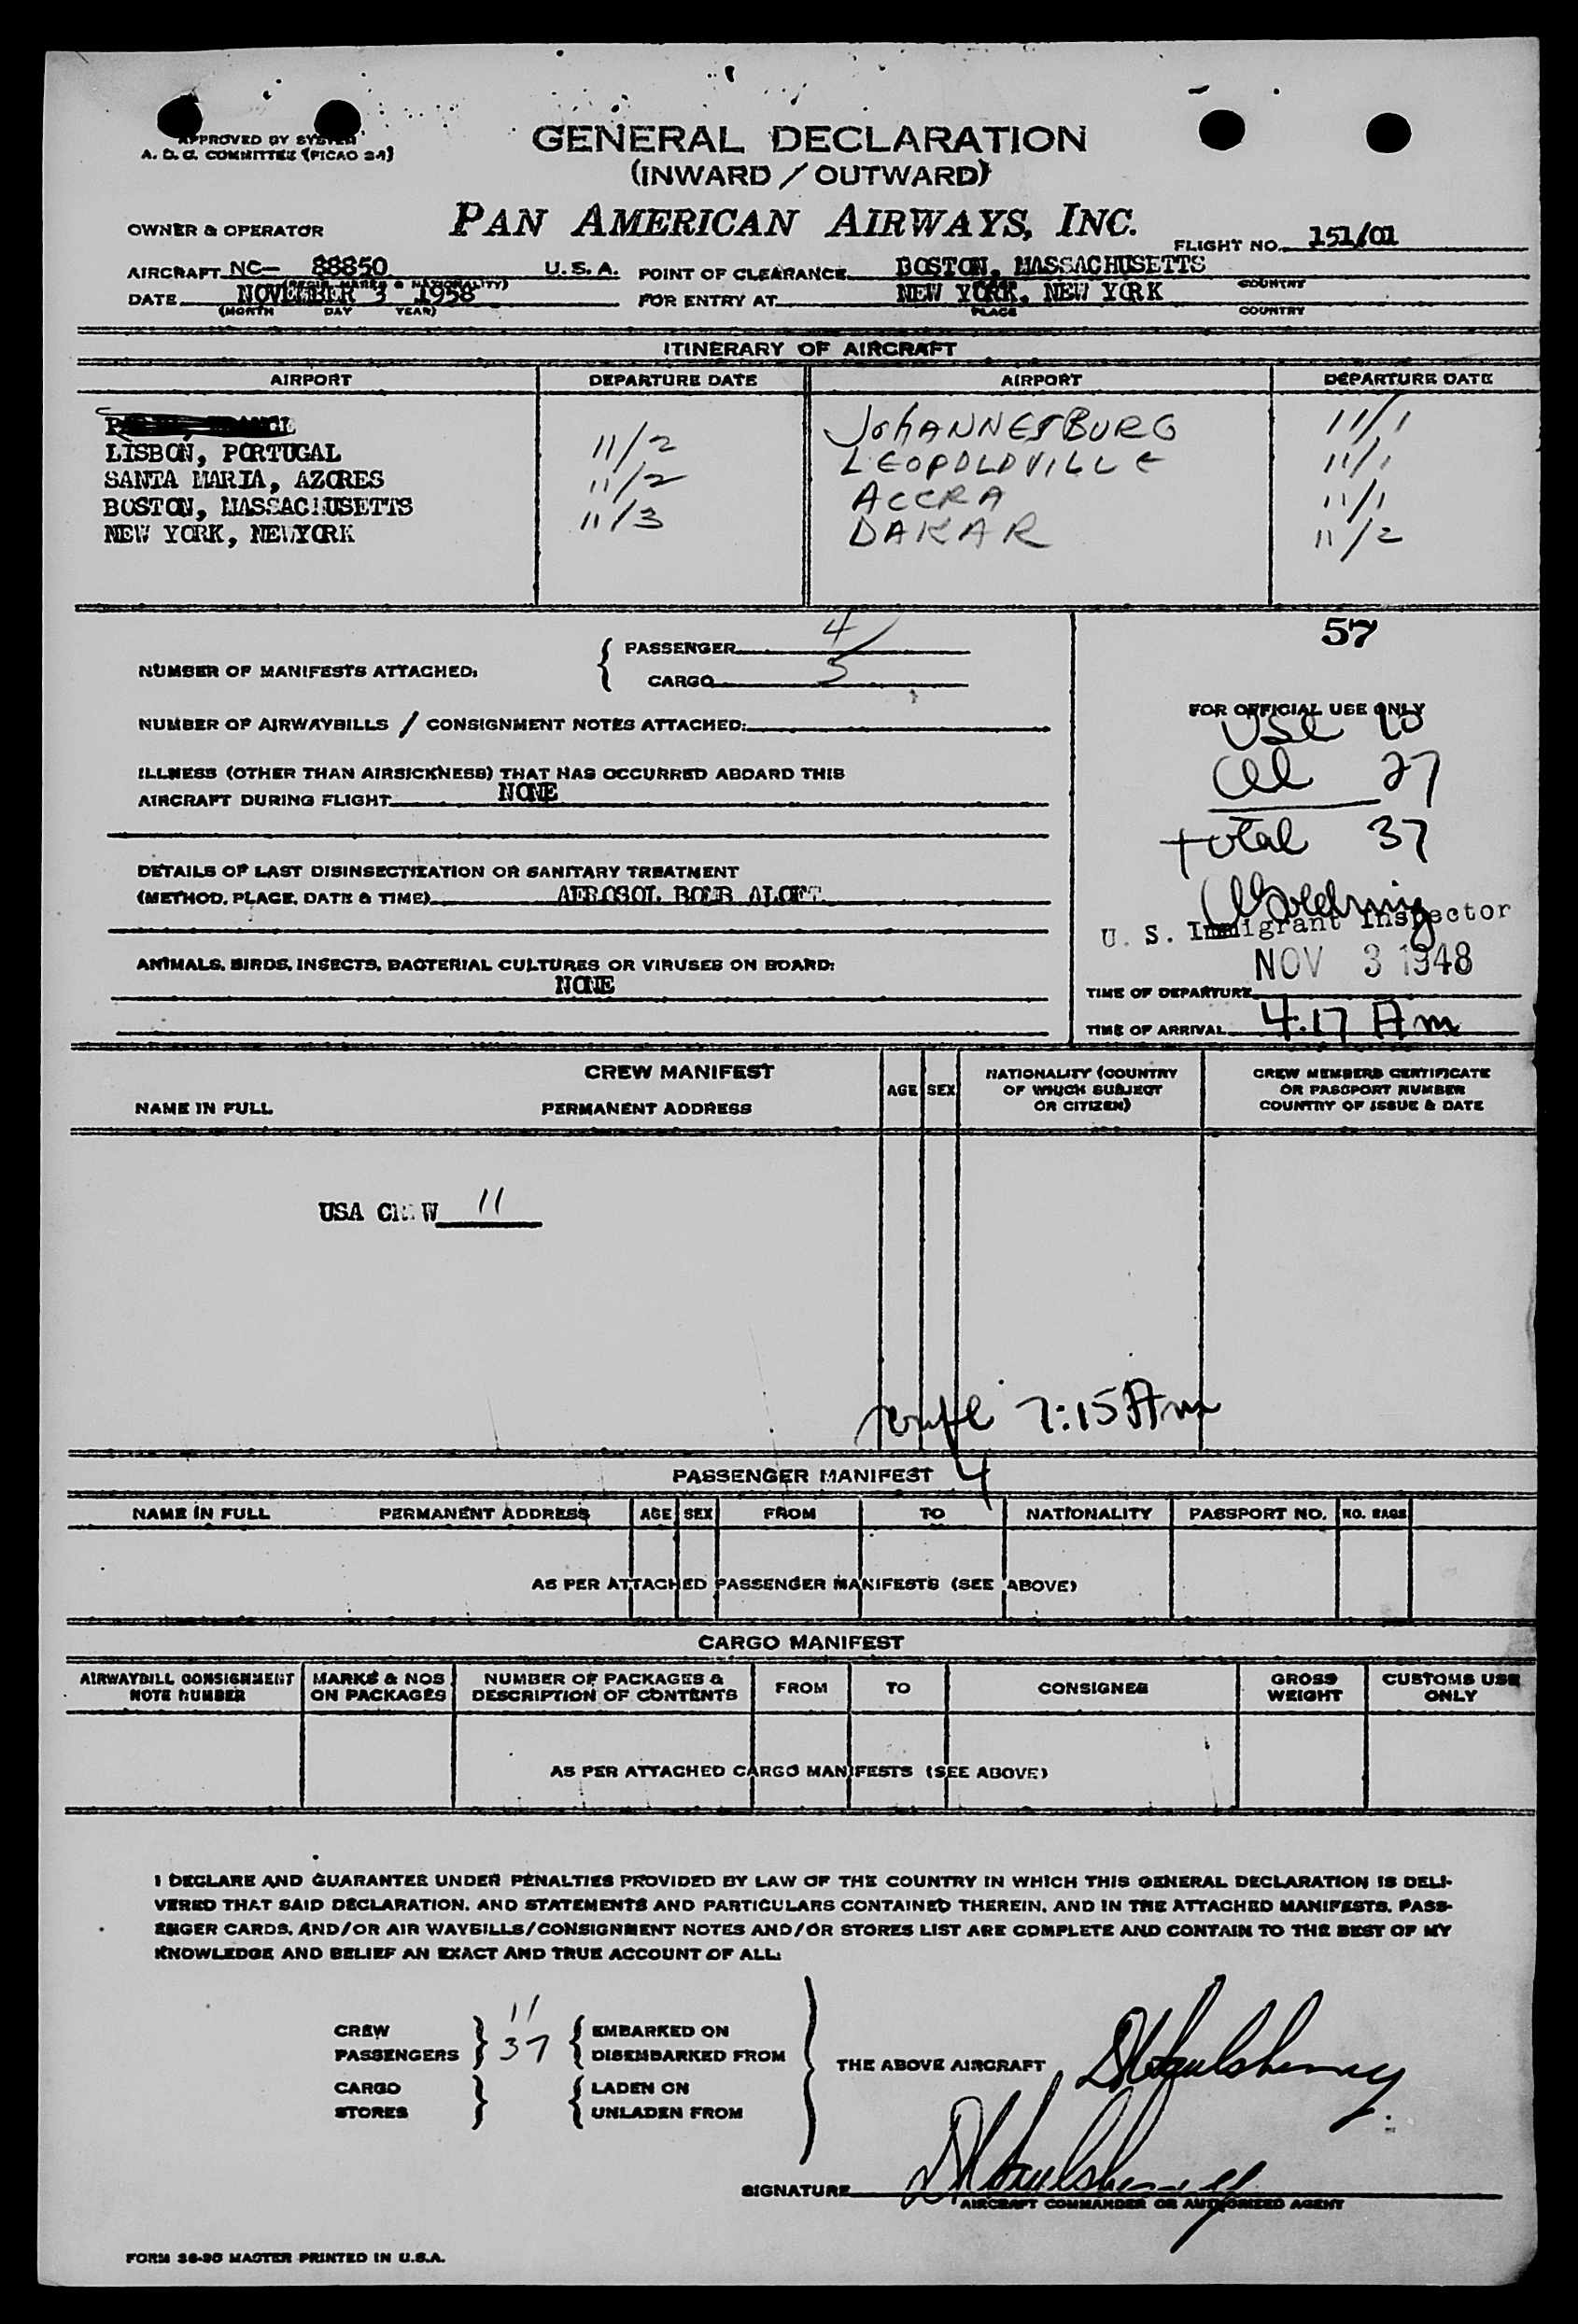 APPROVED BY SYSTEM
A. D. C. COMMITTEE (PICAO 2A)
GENERAL DECLARATION
(INWARD / OUTWARD)
OWNER & OPERATOR
PAN AMERICAN AIRWAYS, INC.
FLIGHT NO. 151/01
AIRCRAFT NC- 88850 U. S. A.
(REGIS. MARKS & NATIONALITY)
POINT OF CLEARANCE BOSTON, MASSACHUSETTS
COUNTRY
DATE NOVEMBER 3 1958
(MONTH DAY YEAR)
FOR ENTRY AT NEW YORK, NEW YORK
PLACE COUNTRY
ITINERARY OF AIRCRAFT
AIRPORT DEPARTURE DATE AIRPORT DEPARTURE DATE
JOHANNESBURG 11/1
LISBON, PORTUGAL 11/2 LEOPOLDVILLE 11/1
SANTA MARIA, AZORES 11/2 ACCRA 11/1
BOSTON, MASSACHUSETTS 11/3 DAKAR 11/2
NEW YORK, NEWYORK
57
NUMBER OF MANIFESTS ATTACHED:
PASSENGER 4
CARGO 5
NUMBER OF AIRWAYBILLS / CONSIGNMENT NOTES ATTACHED:
FOR OFFICIAL USE ONLY
USC 10
al 27
total 37
ILLNESS (OTHER THAN AIRSICKNESS) THAT HAS OCCURRED ABOARD THIS
AIRCRAFT DURING FLIGHT NONE
DETAILS OF LAST DISINSECTIZATION OR SANITARY TREATMENT
(METHOD, PLACE, DATE & TIME) AEROSOL BOMB ALOFT
U. S. Immigrant Inspector
NOV 3 1948
ANIMALS, BIRDS, INSECTS, BACTERIAL CULTURES OR VIRUSES ON BOARD:
NONE
TIME OF DEPARTURE
TIME OF ARRIVAL 4:17 Am
CREW MANIFEST
NAME IN FULL PERMANENT ADDRESS
AGE SEX
NATIONALITY (COUNTRY
OF WHICH SUBJECT
OR CITIZEN)
CREW MEMBERS CERTIFICATE
OR PASSPORT NUMBER
COUNTRY OF ISSUE & DATE
USA CREW 11
7:15 Am
PASSENGER MANIFEST 4
NAME IN FULL PERMANENT ADDRESS AGE SEX FROM TO NATIONALITY PASSPORT NO. NO. BAGS
AS PER ATTACHED PASSENGER MANIFESTS (SEE ABOVE)
CARGO MANIFEST
AIRWAYBILL CONSIGNMENT
NOTE NUMBER
MARKS & NOS
ON PACKAGES
NUMBER OF PACKAGES &
DESCRIPTION OF CONTENTS
FROM TO CONSIGNEE
GROSS
WEIGHT
CUSTOMS USE
ONLY
AS PER ATTACHED CARGO MANIFESTS (SEE ABOVE)
I DECLARE AND GUARANTEE UNDER PENALTIES PROVIDED BY LAW OF THE COUNTRY IN WHICH THIS GENERAL DECLARATION IS DELI-
VERED THAT SAID DECLARATION, AND STATEMENTS AND PARTICULARS CONTAINED THEREIN, AND IN THE ATTACHED MANIFESTS, PASS-
ENGER CARDS, AND/OR AIR WAYBILLS/CONSIGNMENT NOTES AND/OR STORES LIST ARE COMPLETE AND CONTAIN TO THE BEST OF MY
KNOWLEDGE AND BELIEF AN EXACT AND TRUE ACCOUNT OF ALL:
CREW 11 EMBARKED ON
PASSENGERS 37 DISEMBARKED FROM
THE ABOVE AIRCRAFT
CARGO LADEN ON
STORES UNLADEN FROM
SIGNATURE
AIRCRAFT COMMANDER OR AUTHORIZED AGENT
FORM 36-20 MASTER PRINTED IN U.S.A.